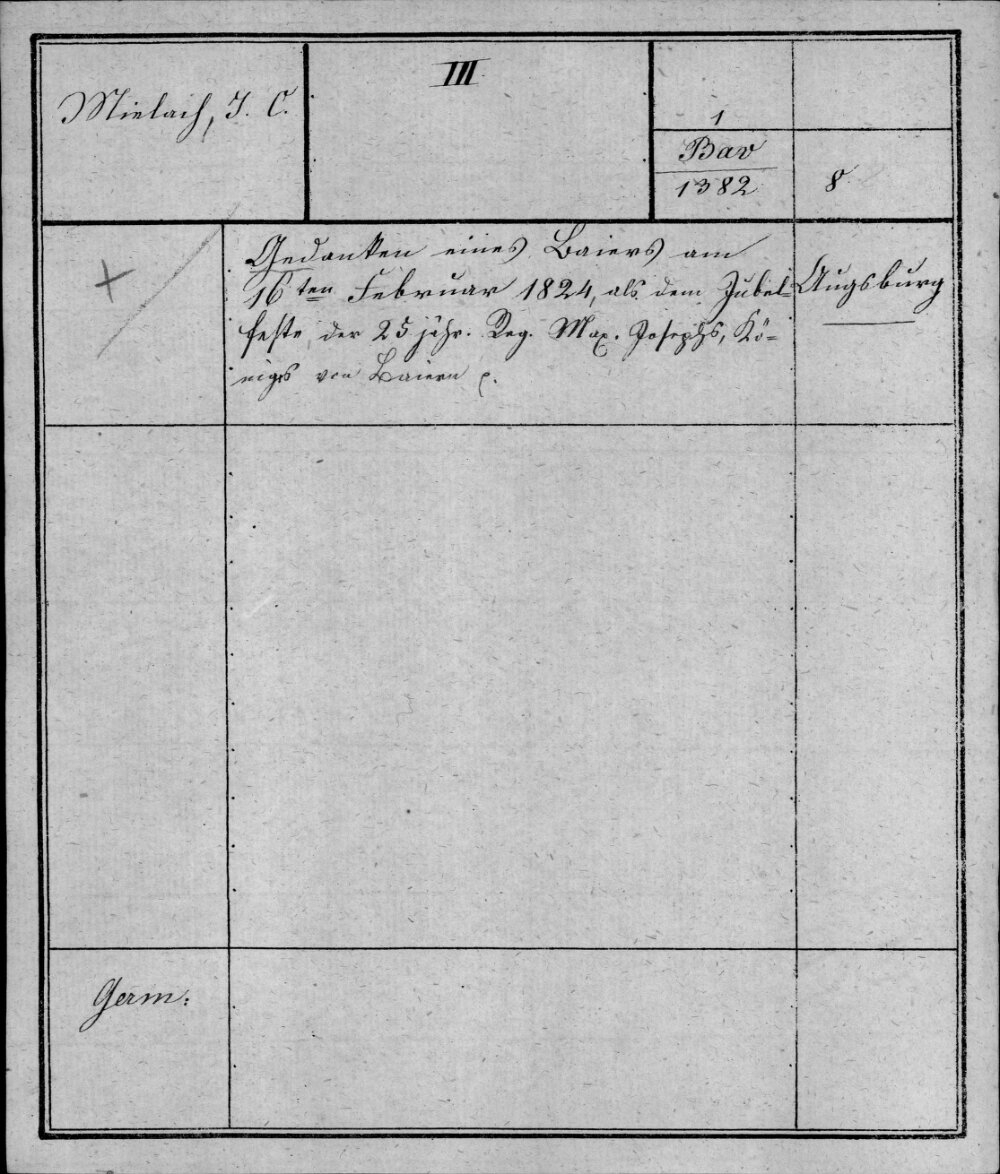 Mielach, J. C.
III
1
Bav
1382
8.
+
Gedanken eines Baiers am
16ten Februar 1824, als dem Jubel-
feste der 25 jähr. Reg. Max. Josephs, Kö-
nigs von Baiern
Augsburg
Germ: